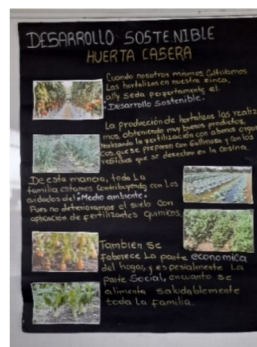 DESARROLLO SOSTENIBLE
HUERTA CASERA
Cuando nosotros mismos Cultivamos
Las hortalizas en nuestra finca,
allí se da perfectamente el
Desarrollo Sostenible.
La producción de hortalizas las realiza
mos, obteniendo muy buenos productos,
realizando la fertilización con abonos orgáni
cos que se preparan con Gallinaza y con los
residuos que se desechan en la cocina.
De esta manera, toda La
familia estamos contribuyendo con los
cuidados del "Medio ambiente"
Pues no deterioramos el suelo con
aplicación de fertilizantes químicos.
También se
Faborece La parte económica
del hogar, y espesialmente La
parte Social, encuanto se
alimenta saludablemente
toda La familia.